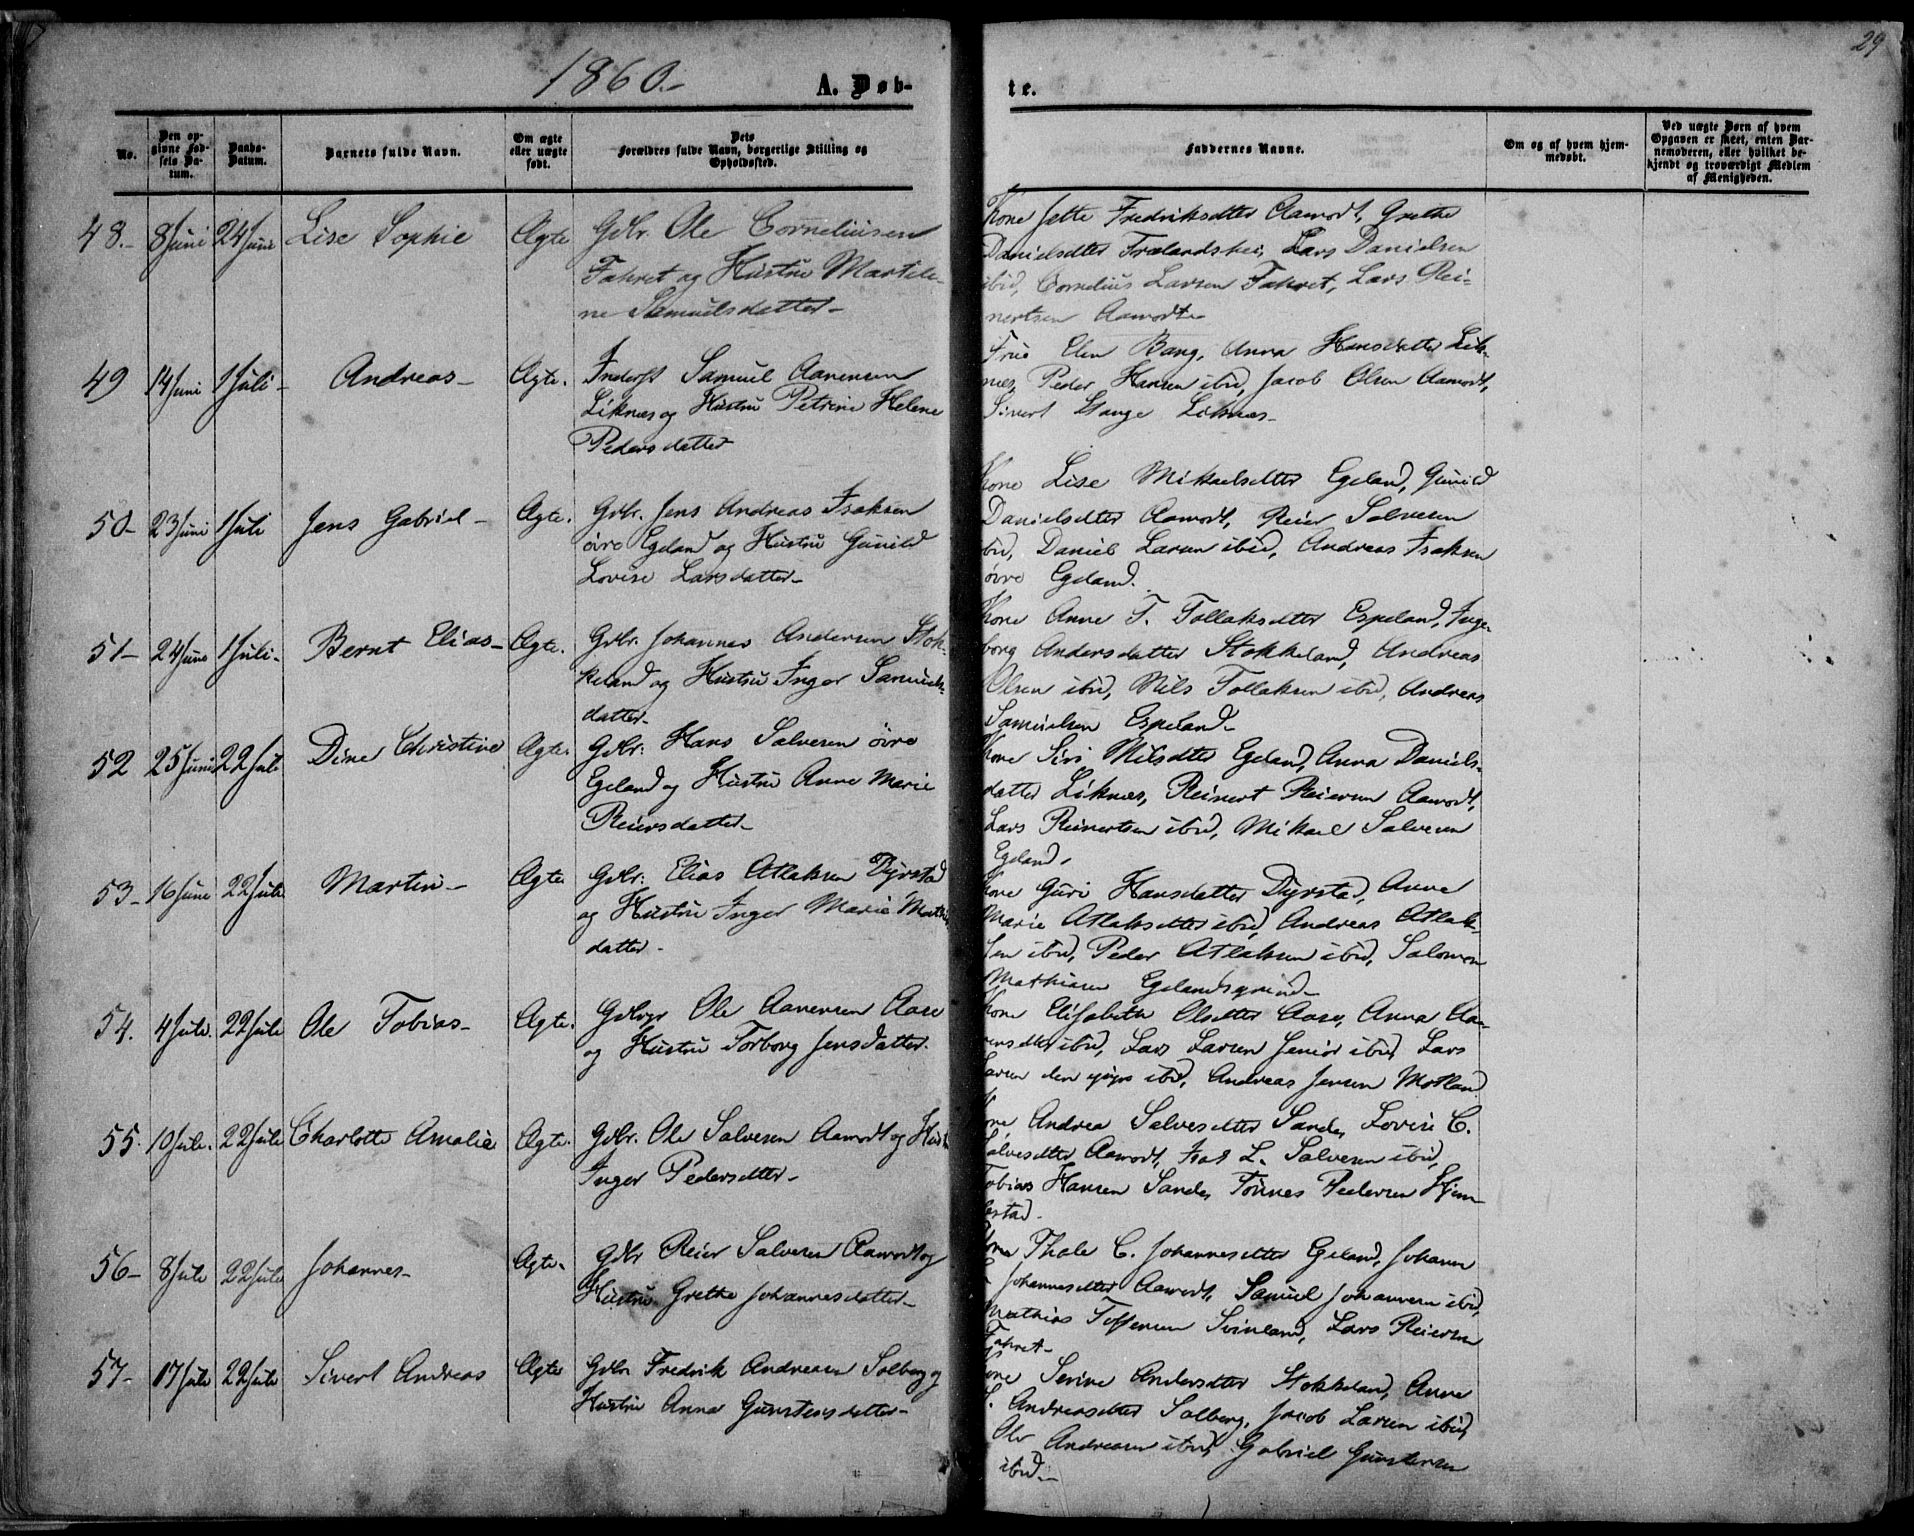 1860.-
A. Døb-
te.
29
No.
Den op-
givne Fød-
sels Da-
tum.
Daabs-
Datum.
Barnets fulde Navn.
Om ægte
eller uægte
født.
Dets
Forældres fulde Navn, borgerlige Stilling og
Opholdssted.
Faddernes Navne.
Om og af hvem hjem-
medøbt.
Ved uægte Børn af hvem
Opgaven er skeet, enten Bar-
nemoderen, eller hvilket be-
kjendt og troværdigt Medlem
af Menigheden.
48.- 8 Juni 24 Juni Lise Sophie Ægte Gdbr. Ole Corneliusen
Fahret og Hustru Martili-
ne Samuelsdatter-
Kone Jette Fredriksdtter Aamodt, Grethe
Danielsdtter Frælandshei, Lars Danielsen
ibid, Cornelius Larsen Fahret, Lars Rei-
nertsen Aamodt-
49 14 Juni 1 Juli- Andreas- Ægte. Inderst Samuel Aanensen
Liknæs og Hustru Petrine Helene
Pedersdatter
Frue Elen Bang, Anna Hansdatter Lik-
næs, Peder Hansen ibid, Jacob Olsen Aamodt,
Sivert Stange Liknæs-
50- 23 Juni 1 Juli Jens Gabriel- Ægte. Gdbr. Jens Andreas Isaksen
øvre Egeland og Hustru Gunild
Lovise Larsdatter-
Kone Lise Mikaelsdtter Egeland, Gunild
Danielsdtter Aamodt, Reier Salvesen
ibid, Daniel Larsen ibid, Andreas Isaksen
øvre Egeland.
51- 24 Juni 1 Juli- Bernt Elias- Ægte. Gdbr. Johannes Andersen Stok-
keland og Hustru Inger Samuels-
datter-
Kone Anne T. Tollaksdtter Espeland, Inge-
borg Andersdatter Stokkeland, Andreas
Olsen ibid, Nils Tollaksen ibid, Andreas
Samuelsen Espeland-
52 25 Juni 22 Juli Dine Christine Ægte. Gdbr. Hans Salvesen øvre
Egeland og Hustru Anne Marie
Reiersdatter-
Kone Siri Nilsdtter Egeland, Anna Daniels-
datter Liknæs, Reinert Reiersen Aamodt,
Lars Reinertsen ibid, Mikael Salvesen
Egeland.
53- 16 Juni 22 Juli Martin- Ægte Gdbr. Elias Atlaksen Dyrstad
og Hustru Inger Marie
datter-
Kone Guri Hansdatter Dyrstad, Anne
Marie Atlaksdtter ibid, Andreas Atlak-
sen ibid, Peder Atlaksen ibid, Salomon
Mathiasen Egelandsgrind-
54. 4 Juli. 22 Juli Ole Tobias- Ægte. Ole Aanensen Aase
og Hustru Torborg Jensdatter.
Kone Elisabeth Olsdtter Aase, Anna Aa-
nensdtter ibid, Lars Larsen senior ibid, Lars
Larsen den yngre ibid, Andreas Jensen Motland
55. 10 Juli. 22 Juli Charlotte Amalie Ægte. Gdbr. Ole Salvesen Aamodt og
Inger Pedersdtter-
Kone Andrea Salvesdtter Sande, Lovise C.
Salvesdtter Aamodt, L. Salvesen ibid,
Tobias Hansen Sande, Tønnes Pedersen
56- 8 Juli 22 Juli Johannes- Ægte. Gdbr Reier Salvesen Aamodt og
Hustru Grethe Johannesdatter-
Kone Thale C. Johannesdtter Egeland, Johanne
Johannesdtter Aamodt, Samuel Johannesen ibid,
Mathias Svinland, Lars Reiersen
Fahret-
57- 17 Juli 22 Juli Sivert Andreas Ægte Gdbr Fredrik Andreasen Solberg og
Hustru Anna Gunstensdatter-
Kone Serine Andersdtter Stokkeland, Anne
S. Andreasdtter Solberg, Jacob Larsen ibid,
Ole Andreasen ibid, Gabriel Gunstensen
ibid-